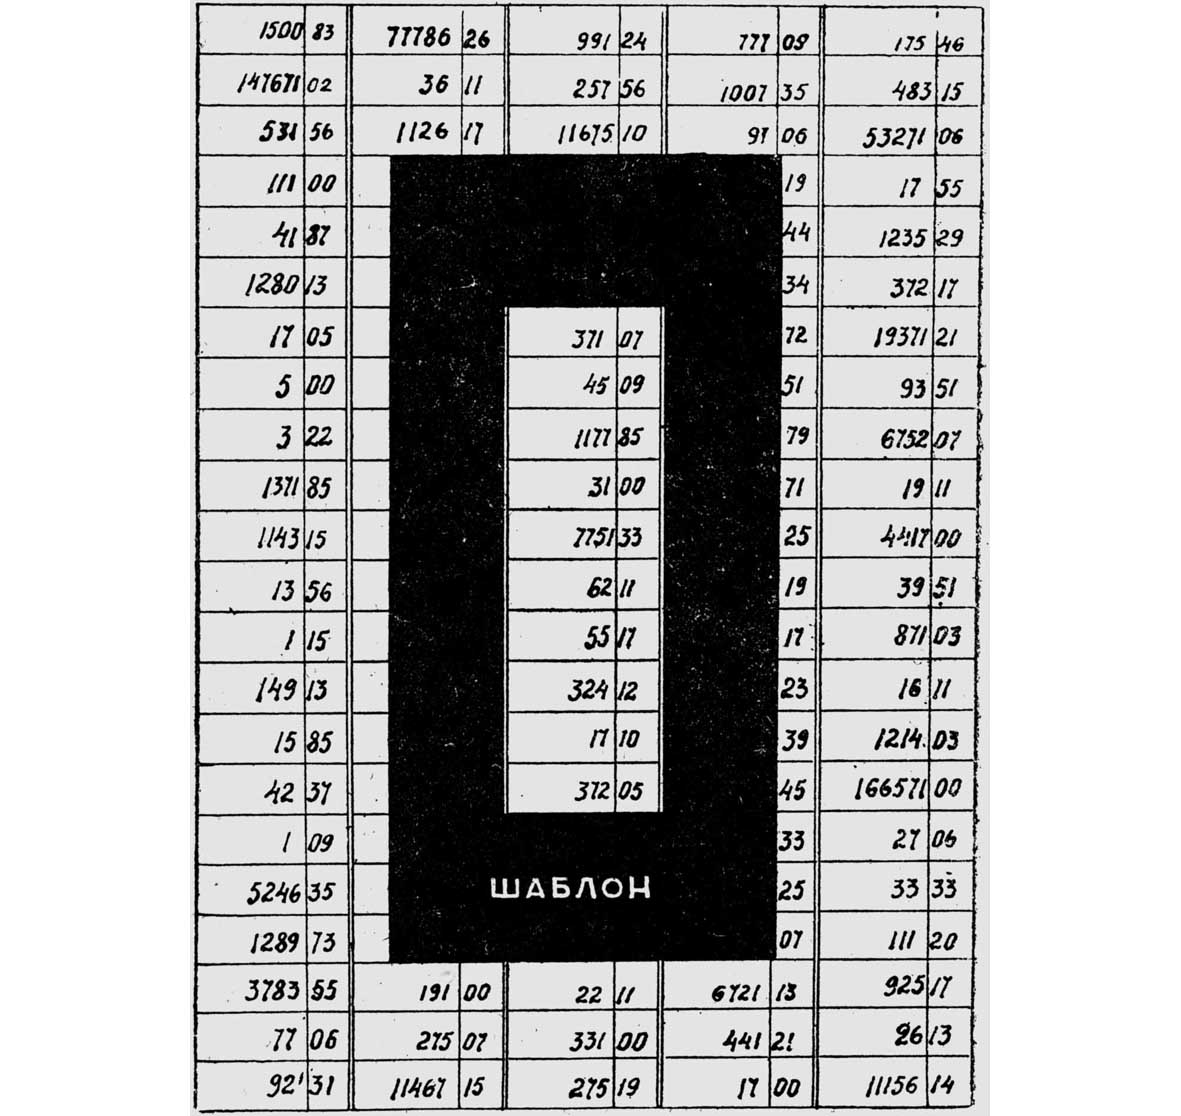 1500 83 77786 26 991 24 777 09 175 46
147671 02 36 11 257 56 1007 35 483 15
531 56 1126 17 11675 10 97 06 53271 06
111 00 19 17 55
41 87 44 1235 29
1280 13 34 372 17
17 05 371 07 72 19371 21
5 00 45 09 51 93 51
3 22 1177 85 79 6752 07
1371 85 31 00 71 19 11
1143 15 7751 33 25 4417 00
13 56 62 11 19 39 51
1 15 55 17 17 871 03
149 13 324 12 23 16 11
15 85 17 10 39 1214 03
42 37 372 05 45 166571 00
1 09 33 27 06
5246 35 ШАБЛОН 25 33 33
1289 73 07 111 20
3783 55 191 00 22 11 6721 13 925 17
77 06 275 07 331 00 441 21 26 13
92 31 11467 15 275 19 17 00 11156 14